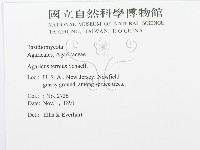 國立自然科學博物館
NATIONAL MUSEUM OF NATURAL SCIENCE
TAICHUNG, TAIWAN, R.O.CHINA
Basidiomycota
Agaricales, Agaricaceae
Agaricus
Loc : U. S. A., New Jersey, Newfield
grassy ground among spruce trees.
: No. 2726
Date: Nov.
Det : Ellis & Everhart